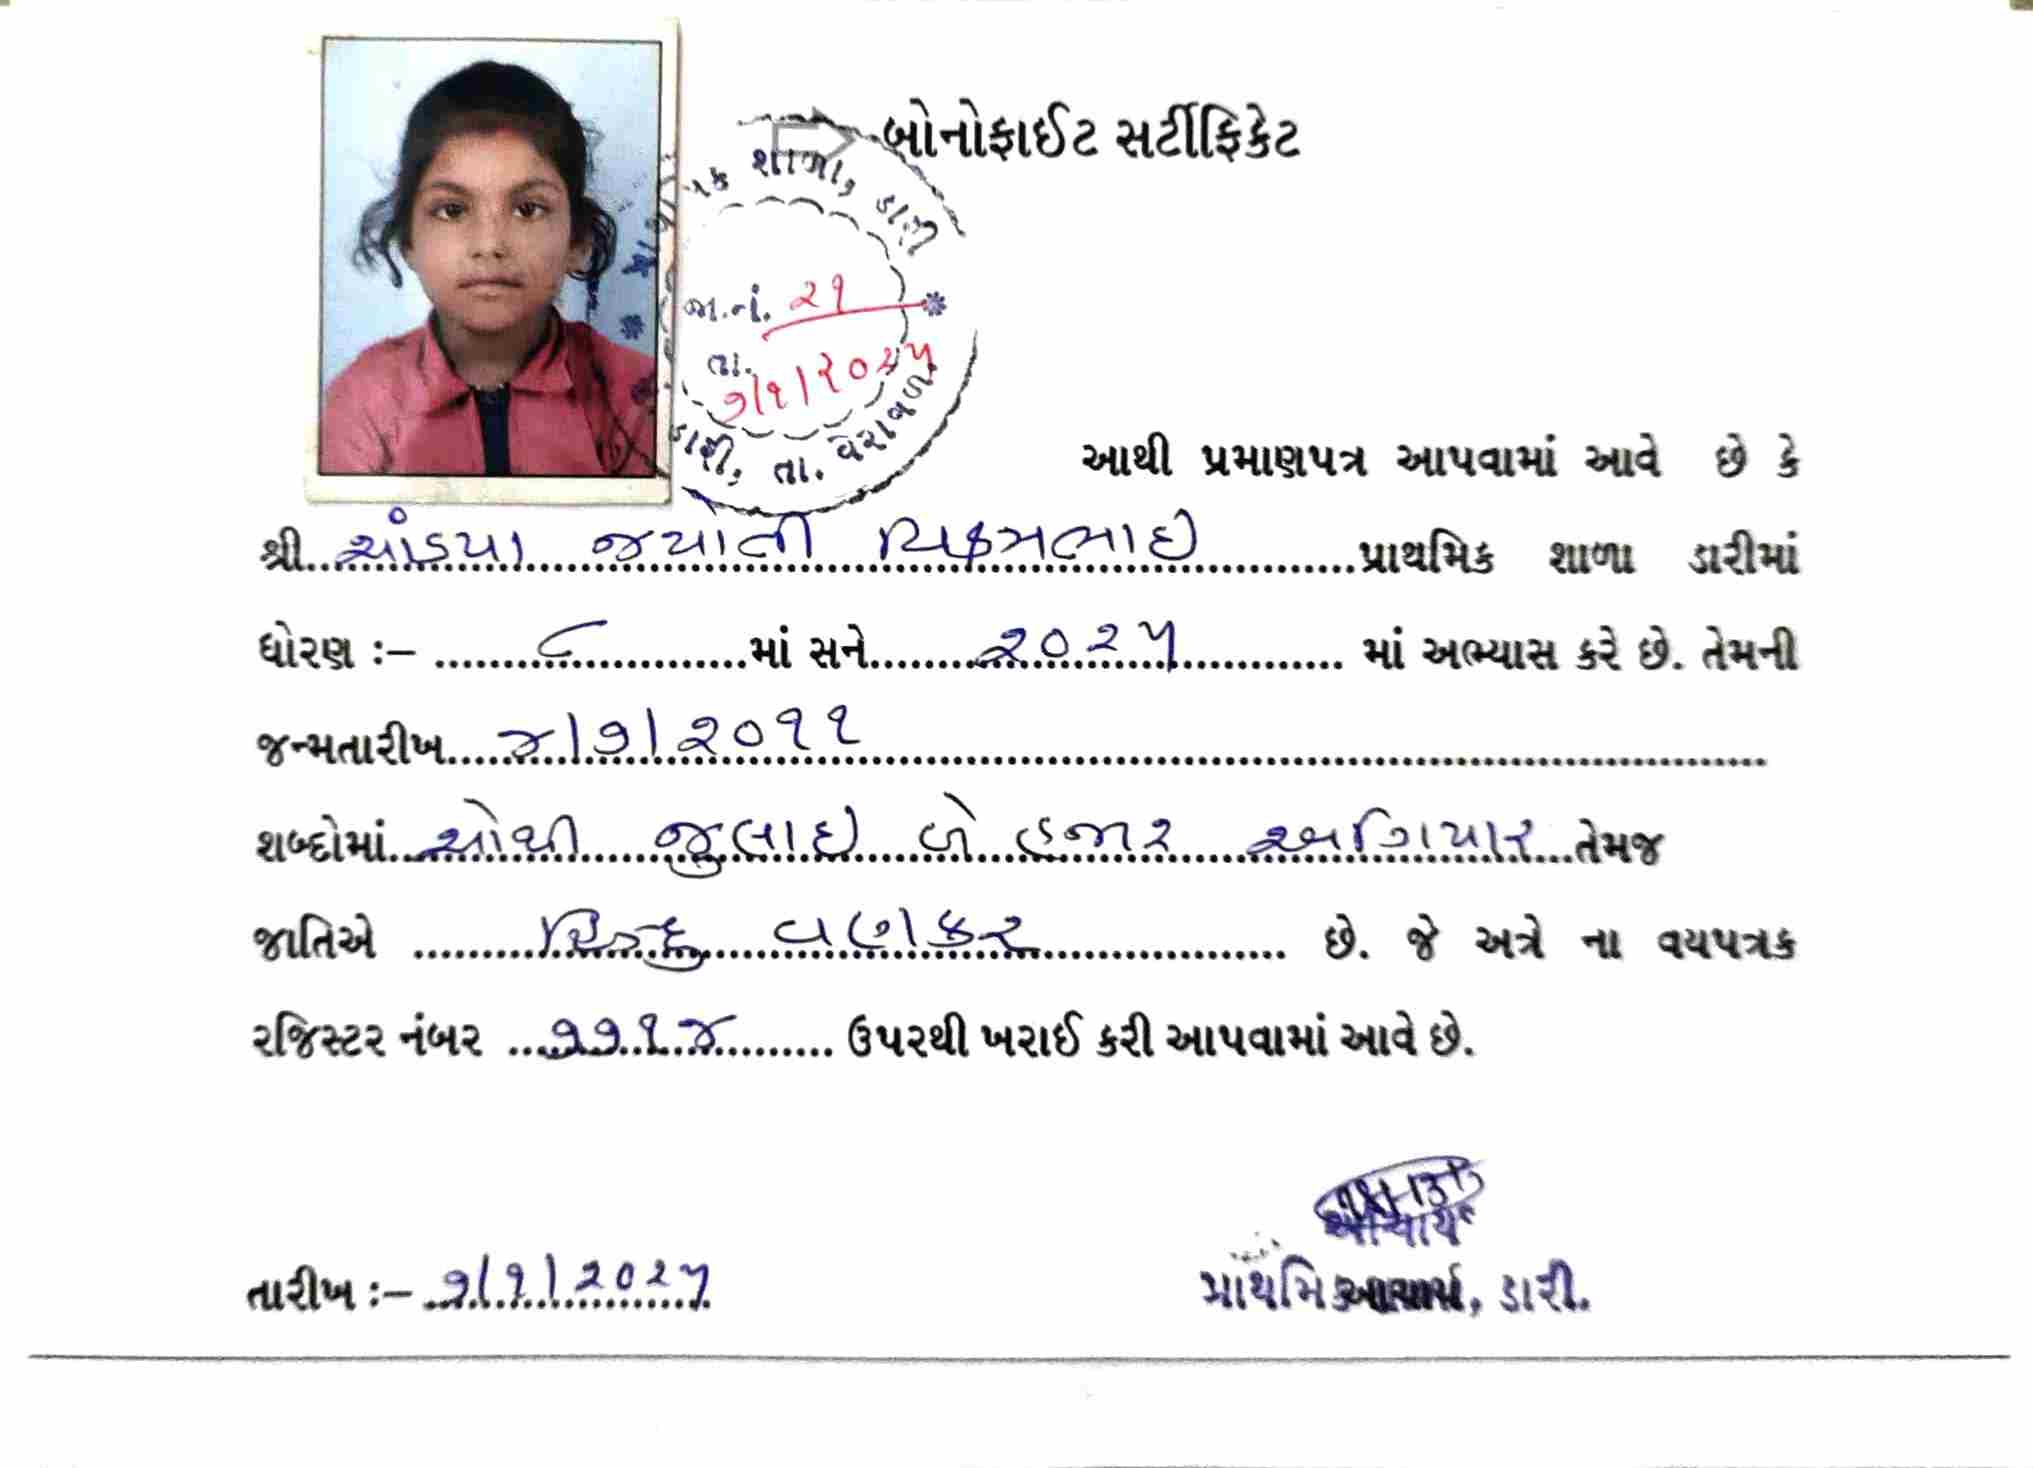 બોનોફાઈટ સર્ટીફિકેટ
શાળા, ડારી
જા.નં. ૨૧
તા. ૭/૧/૨૦૨૫
ડારી, તા. વેરાવળ.
આથી પ્રમાણપત્ર આપવામાં આવે છે કે
શ્રી ચાંડપા જયોતી વિક્રમભાઇ પ્રાથમિક શાળા ડારીમાં
ધોરણ :- ૮ માં સને ૨૦૨૫ માં અભ્યાસ કરે છે. તેમની
જન્મતારીખ ૪/૭/૨૦૧૧
શબ્દોમાં ચોથી જુલાઇ બે હજાર અગિયાર તેમજ
જાતિએ હિન્દુ વણકર છે. જે અત્રે ના વયપત્રક
રજિસ્ટર નંબર ૭૭૧૪ ઉપરથી ખરાઈ કરી આપવામાં આવે છે.
આચાર્ય
તારીખ :- ૭/૧/૨૦૨૫
ડારી.